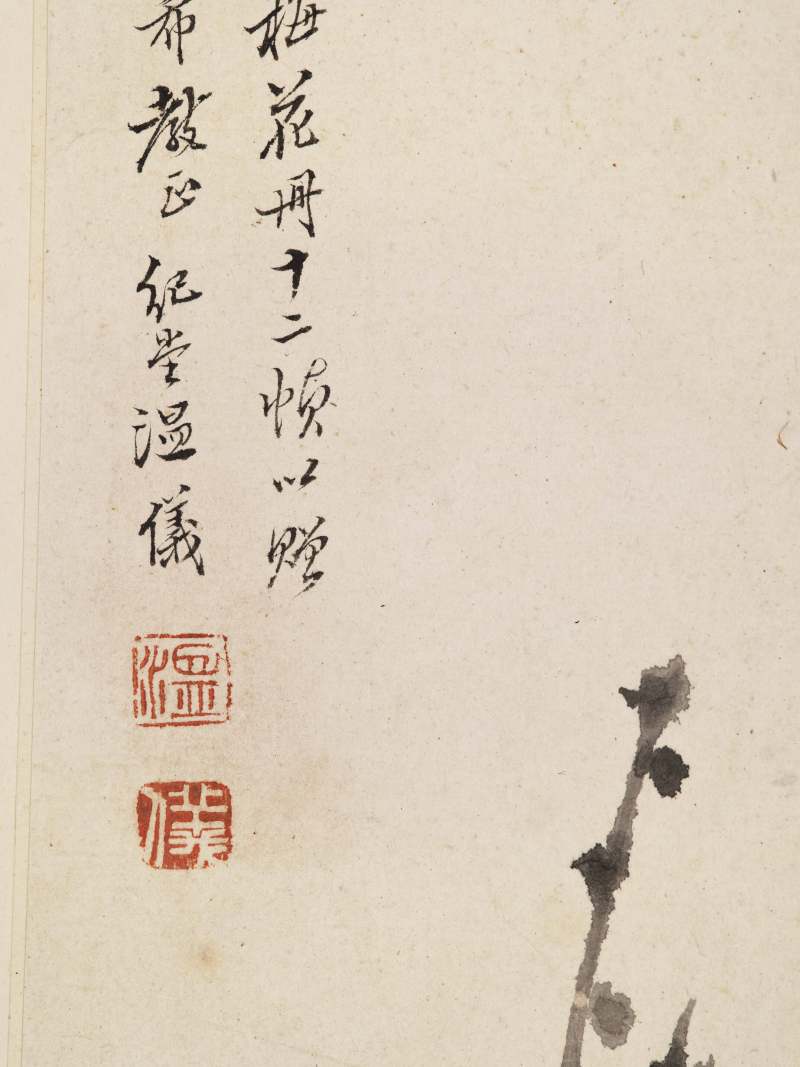 梅花册十二幀以贈
希教正 紀堂溫儀
溫
儀